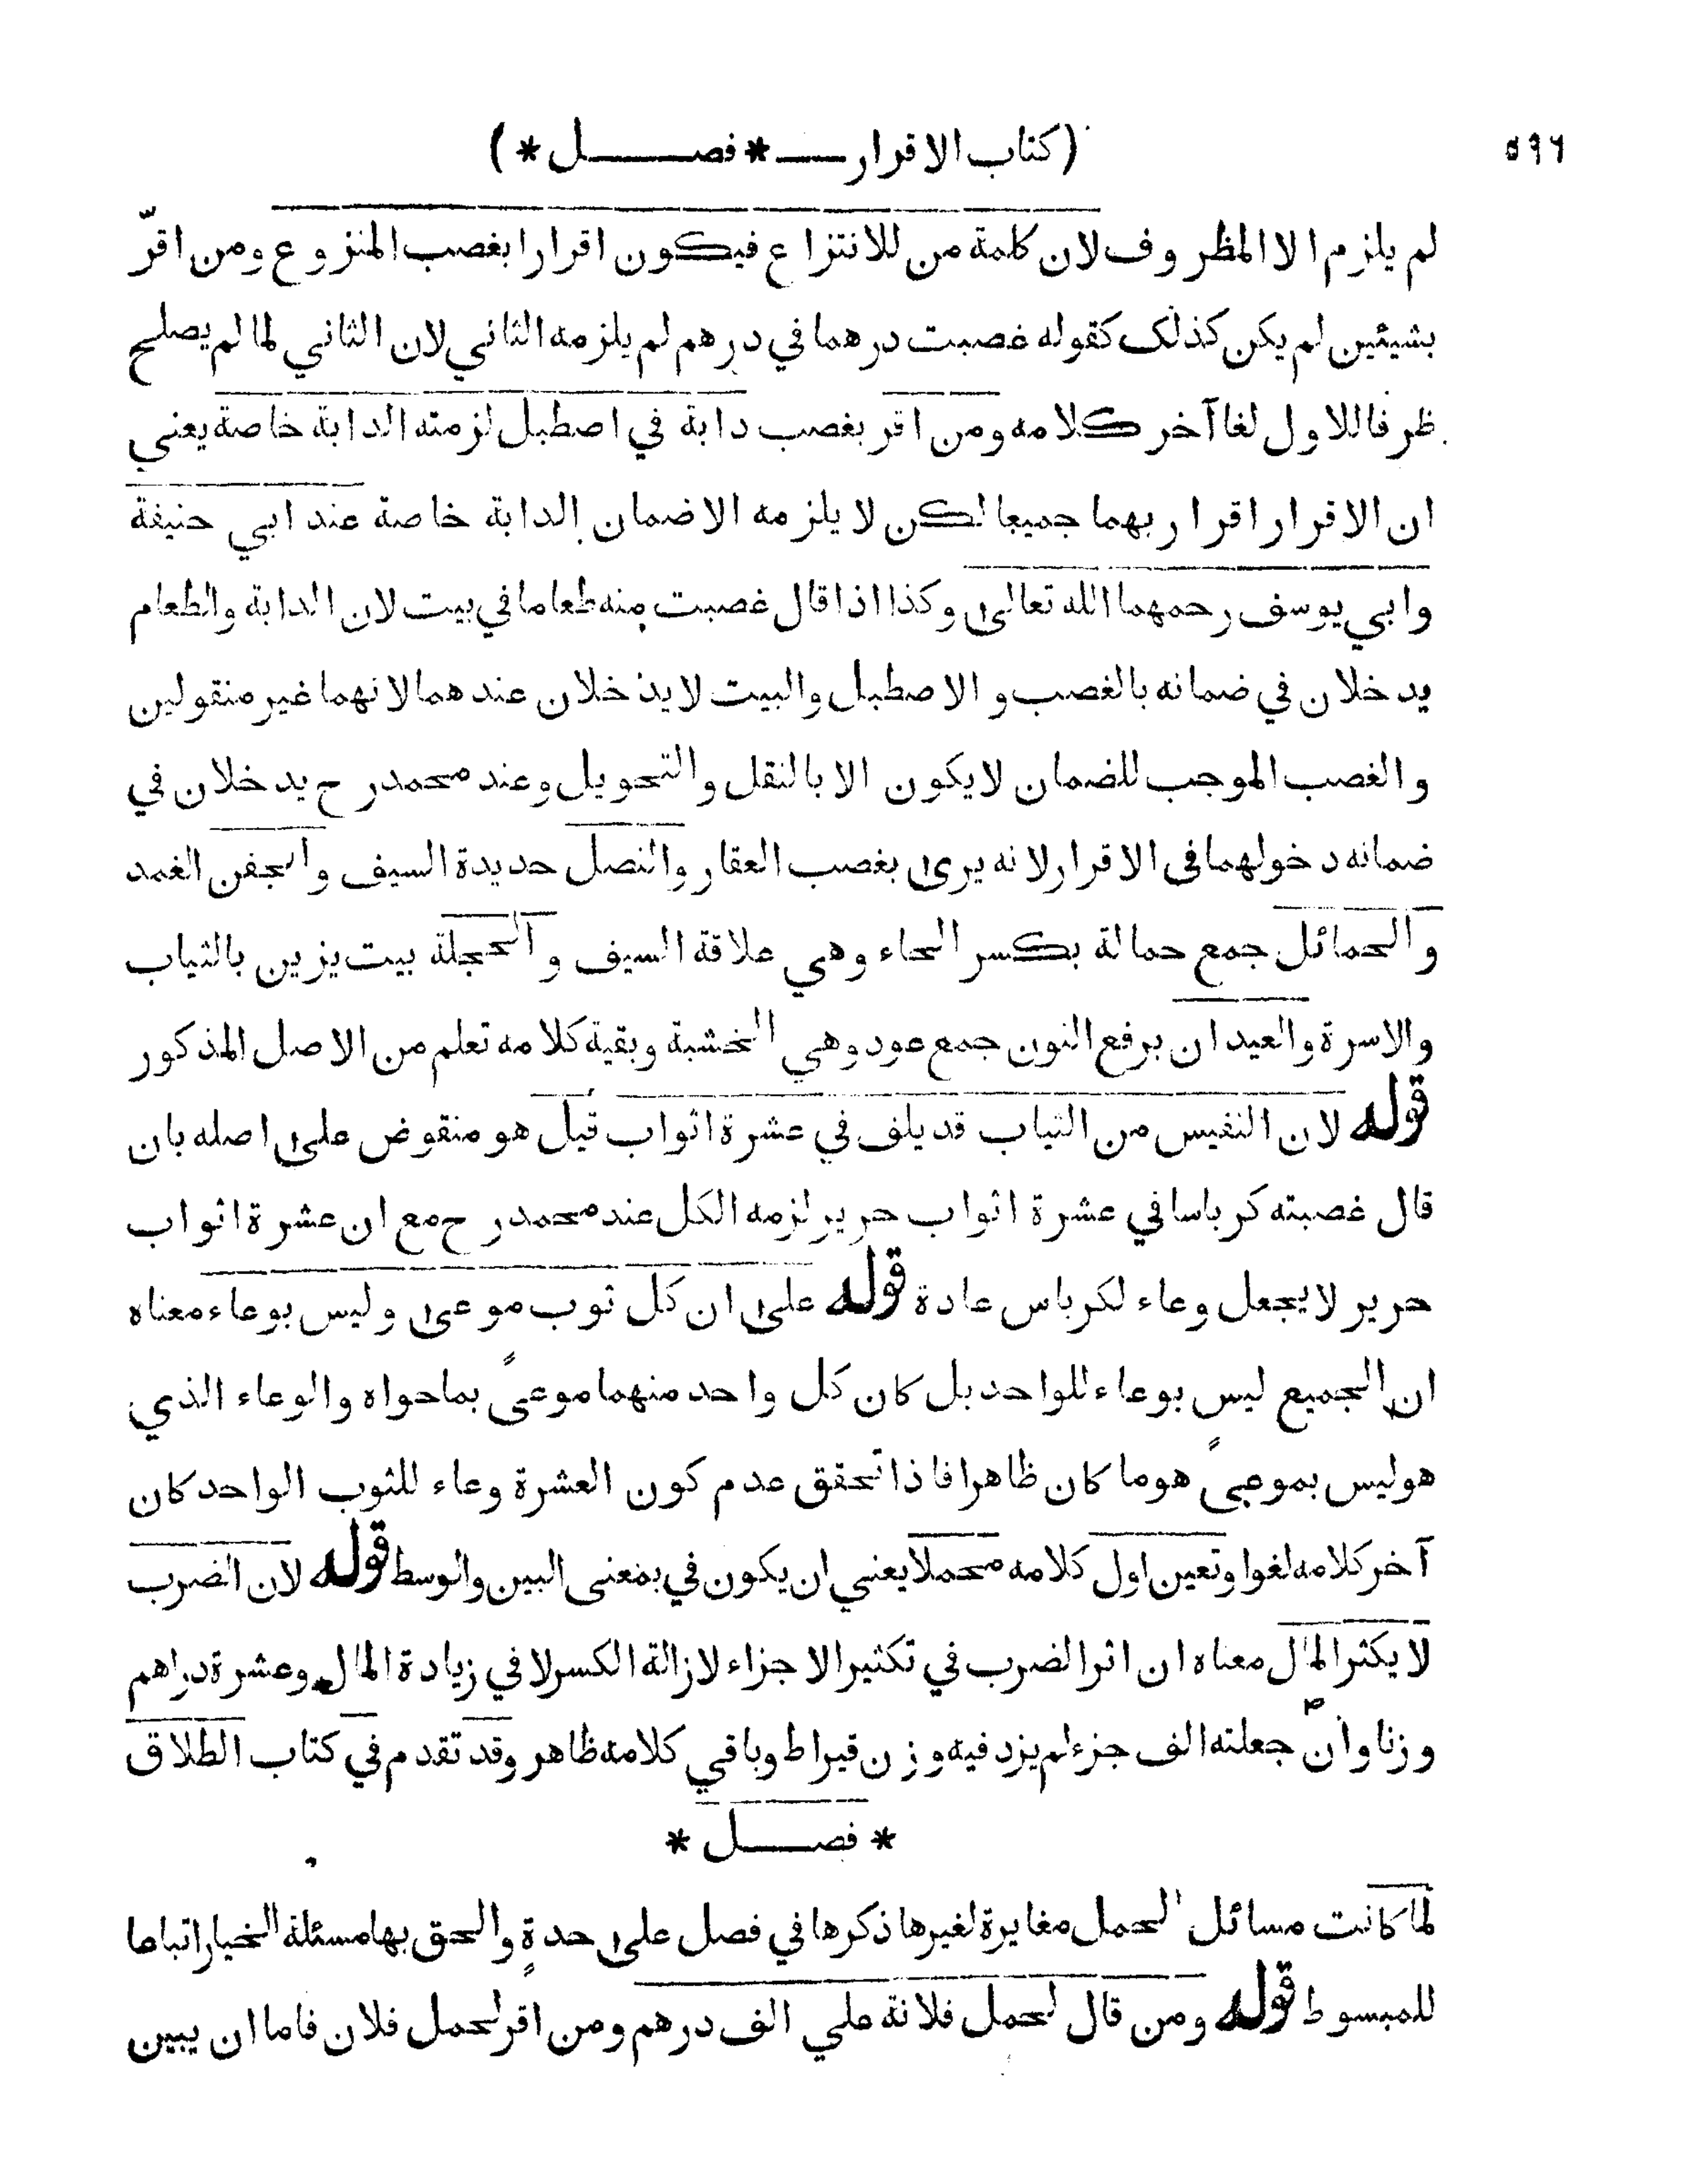 (كتاب الاقرار — * فصل *) ٥٩٦
لم يلزم الا المظروف لان كلمة من للانتزاع فيكون اقرارا بغصب المنزوع ومن اقرّ
بشيئين لم يكن كذلك كقوله غصبت درهما في درهم لم يلزمه الثاني لان الثاني لما لم يصلح
ظرفا للاول لغا آخر كلامه ومن اقر بغصب دابة في اصطبل لزمته الدابة خاصة يعني
ان الاقرار اقرار بهما جميعا لكن لا يلزمه الا ضمان الدابة خاصة عند ابي حنيفة
وابي يوسف رحمهما الله تعالى وكذا اذا قال غصبت منه طعاما في بيت لان الدابة والطعام
يدخلان في ضمانه بالغصب والاصطبل والبيت لا يدخلان عندهما لانهما غير منقولين
والغصب الموجب للضمان لا يكون الا بالنقل والتحويل وعند محمد رح يدخلان في
ضمانه دخولهما في الاقرار لانه يرى بغصب العقار والنصل حديدة السيف والجفن الغمد
والحمائل جمع حمالة بكسر الحاء وهي علاقة السيف والحجلة بيت يزين بالثياب
والاسرة والعيدان برفع النون جمع عود وهي الخشبة وبقية كلامه تعلم من الاصل المذكور
قوله لان النفيس من الثياب قد يلف في عشرة اثواب قيل هو منقوض على اصله بان
قال غصبته كرباسا في عشرة اثواب حرير لزمه الكل عند محمد رح مع ان عشرة اثواب
حرير لا يجعل وعاء لكرباس عادة قوله على ان كل ثوب موعى وليس بوعاء معناه
ان الجميع ليس بوعاء للواحد بل كان كل واحد منهما موعىً بما حواه والوعاء الذي
هو ليس بموعىً هو ما كان ظاهرا فاذا تحقق عدم كون العشرة وعاء للثوب الواحد كان
آخر كلامه لغوا وتعين اول كلامه محملا يعني ان يكون في بمعنى البين والوسط قوله لان الضرب
لا يكثر المال معناه ان اثر الضرب في تكثير الاجزاء لازالة الكسر لا في زيادة المال وعشرة دراهم
وزنا وان جعلته الف جزء لم يزد فيه وزن قيراط وباقي كلامه ظاهر وقد تقدم في كتاب الطلاق
* فصل *
لما كانت مسائل الحمل مغايرة لغيرها ذكرها في فصل على حدةٍ والحق بها مسئلة الخيار اتباعا
للمبسوط قوله ومن قال لحمل فلانة علي الف درهم ومن اقر لحمل فلان فاما ان يبين